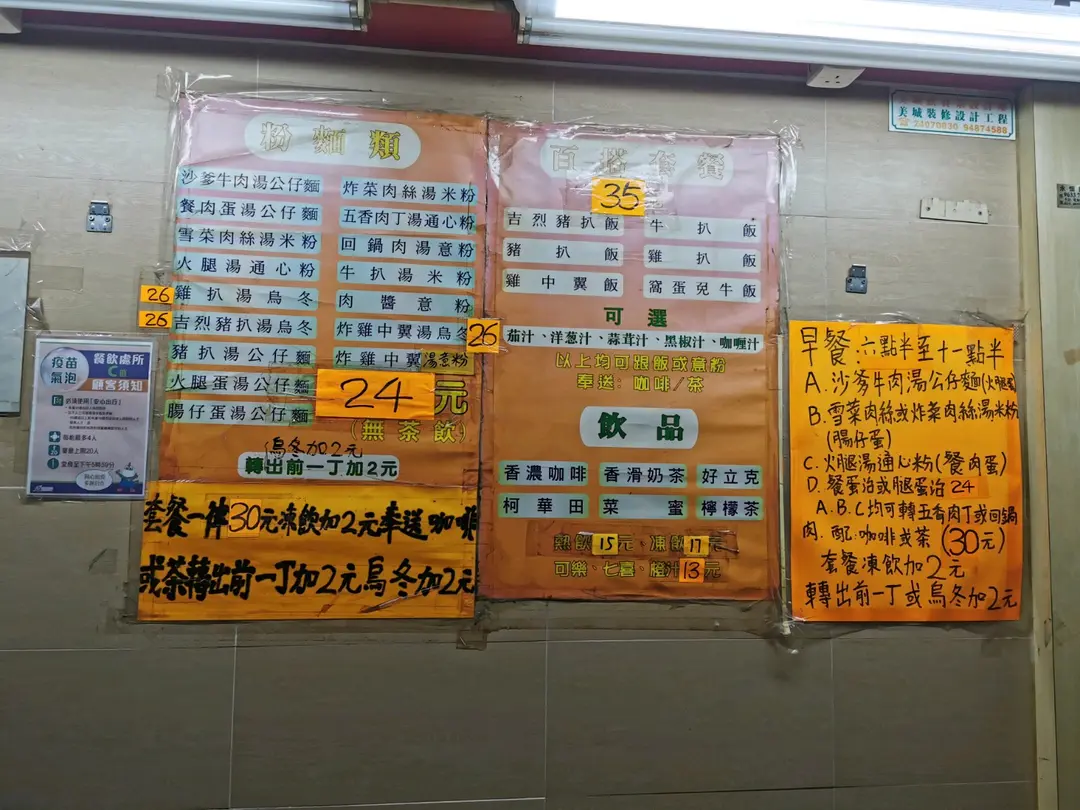 美城裝修設計工程
24070030 94874588
疫苗
氣泡
餐飲處所
C類
顧客須知
每枱最多4人
粉麵類
沙爹牛肉湯公仔麵
餐肉蛋湯公仔麵
雪菜肉絲湯米粉
火腿湯通心粉
26 雞扒湯烏冬
26 吉烈豬扒湯烏冬
豬扒湯公仔麵
火腿蛋湯公仔麵
腸仔蛋湯公仔麵
炸菜肉絲湯米粉
五香肉丁湯通心粉
回鍋肉湯意粉
牛扒湯米粉
肉醬意粉
炸雞中翼湯烏冬 26
炸雞中翼湯意粉
24元
(無茶飲)
烏冬加2元
轉出前一丁加2元
套餐一律30元凍飲加2元奉送咖啡
或茶轉出前一丁加2元烏冬加2元
百搭套餐
35
吉烈豬扒飯 牛扒飯
豬扒飯 雞扒飯
雞中翼飯 窩蛋免牛飯
可選
茄汁、洋葱汁、蒜茸汁、黑椒汁、咖喱汁
以上均可跟飯或意粉
奉送：咖啡/茶
飲品
香濃咖啡 香滑奶茶 好立克
柯華田 菜蜜 檸檬茶
熱飲15元、凍飲17元
可樂、七喜、橙汁13元
早餐：六點半至十一點半
A. 沙爹牛肉湯公仔麵(火腿蛋)
B. 雪菜肉絲或炸菜肉絲湯米粉
(腸仔蛋)
C. 火腿湯通心粉(餐肉蛋)
D. 餐蛋治或腿蛋治 24
A.B.C均可轉五香肉丁或回鍋
肉. 配：咖啡或茶(30元)
套餐凍飲加2元
轉出前一丁或烏冬加2元